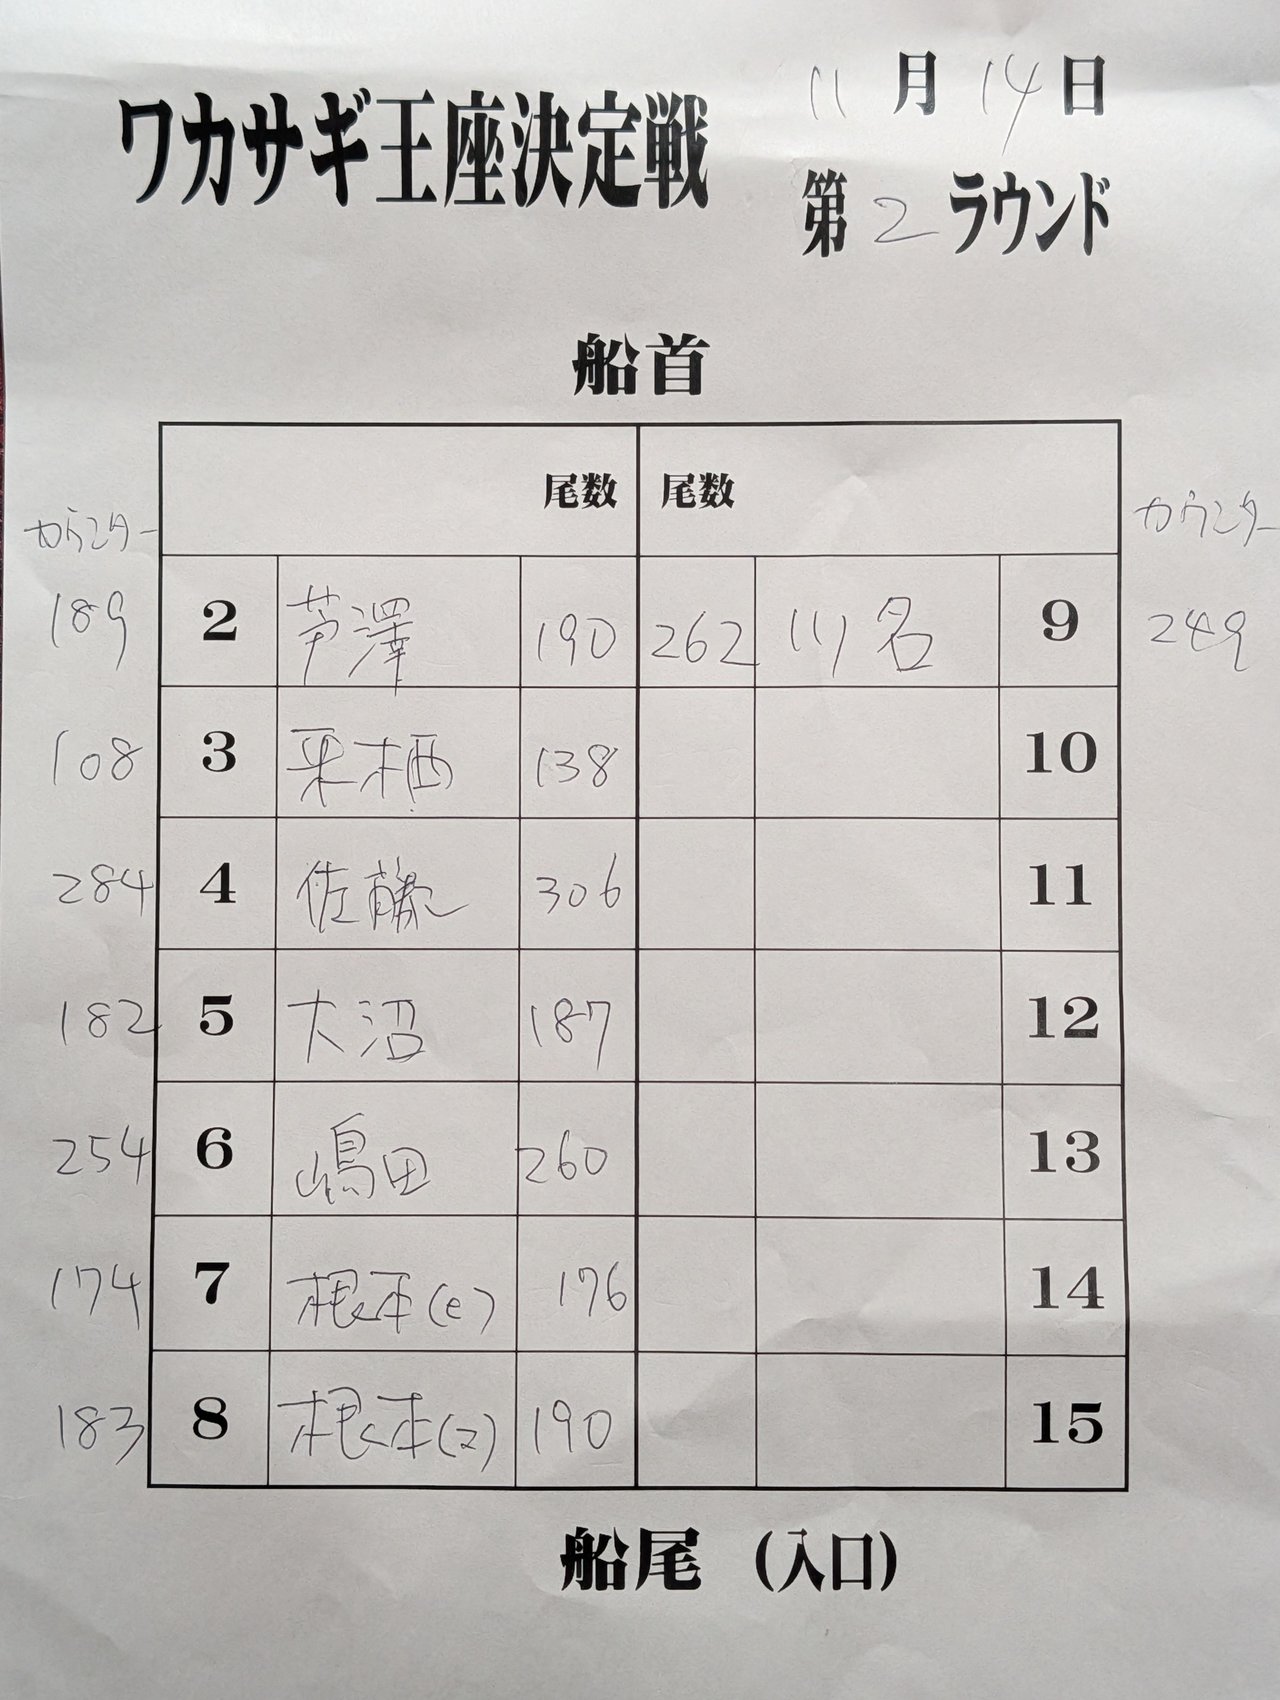 ワカサギ王座決定戦
11月14日
第2ラウンド
船首
尾数 尾数
カウンター カウンター
189 2 芦澤 190 262 川名 9 249
108 3 来栖 138 10
284 4 佐藤 306 11
182 5 大沼 187 12
254 6 嶋田 260 13
174 7 根本(e) 176 14
183 8 根本(z) 190 15
船尾 (入口)